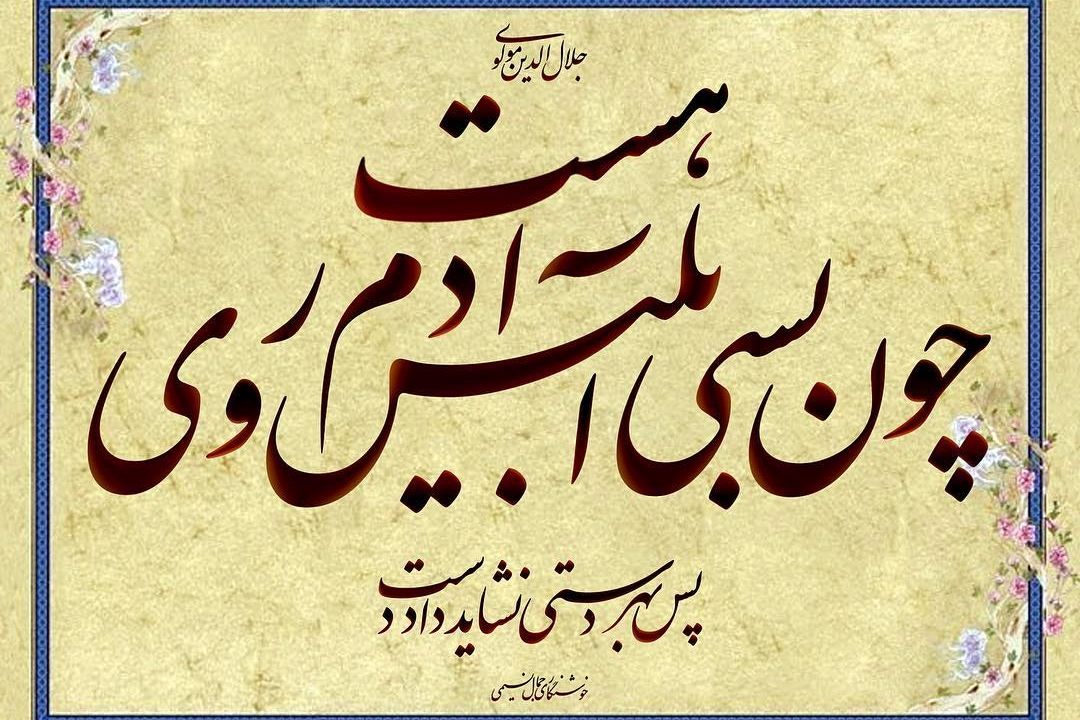 جلال الدین مولوی
چون بسی ابلیس آدم روی هست
پس بهر دستی نشاید داد دست
خوشنگاری جمال نسیمی